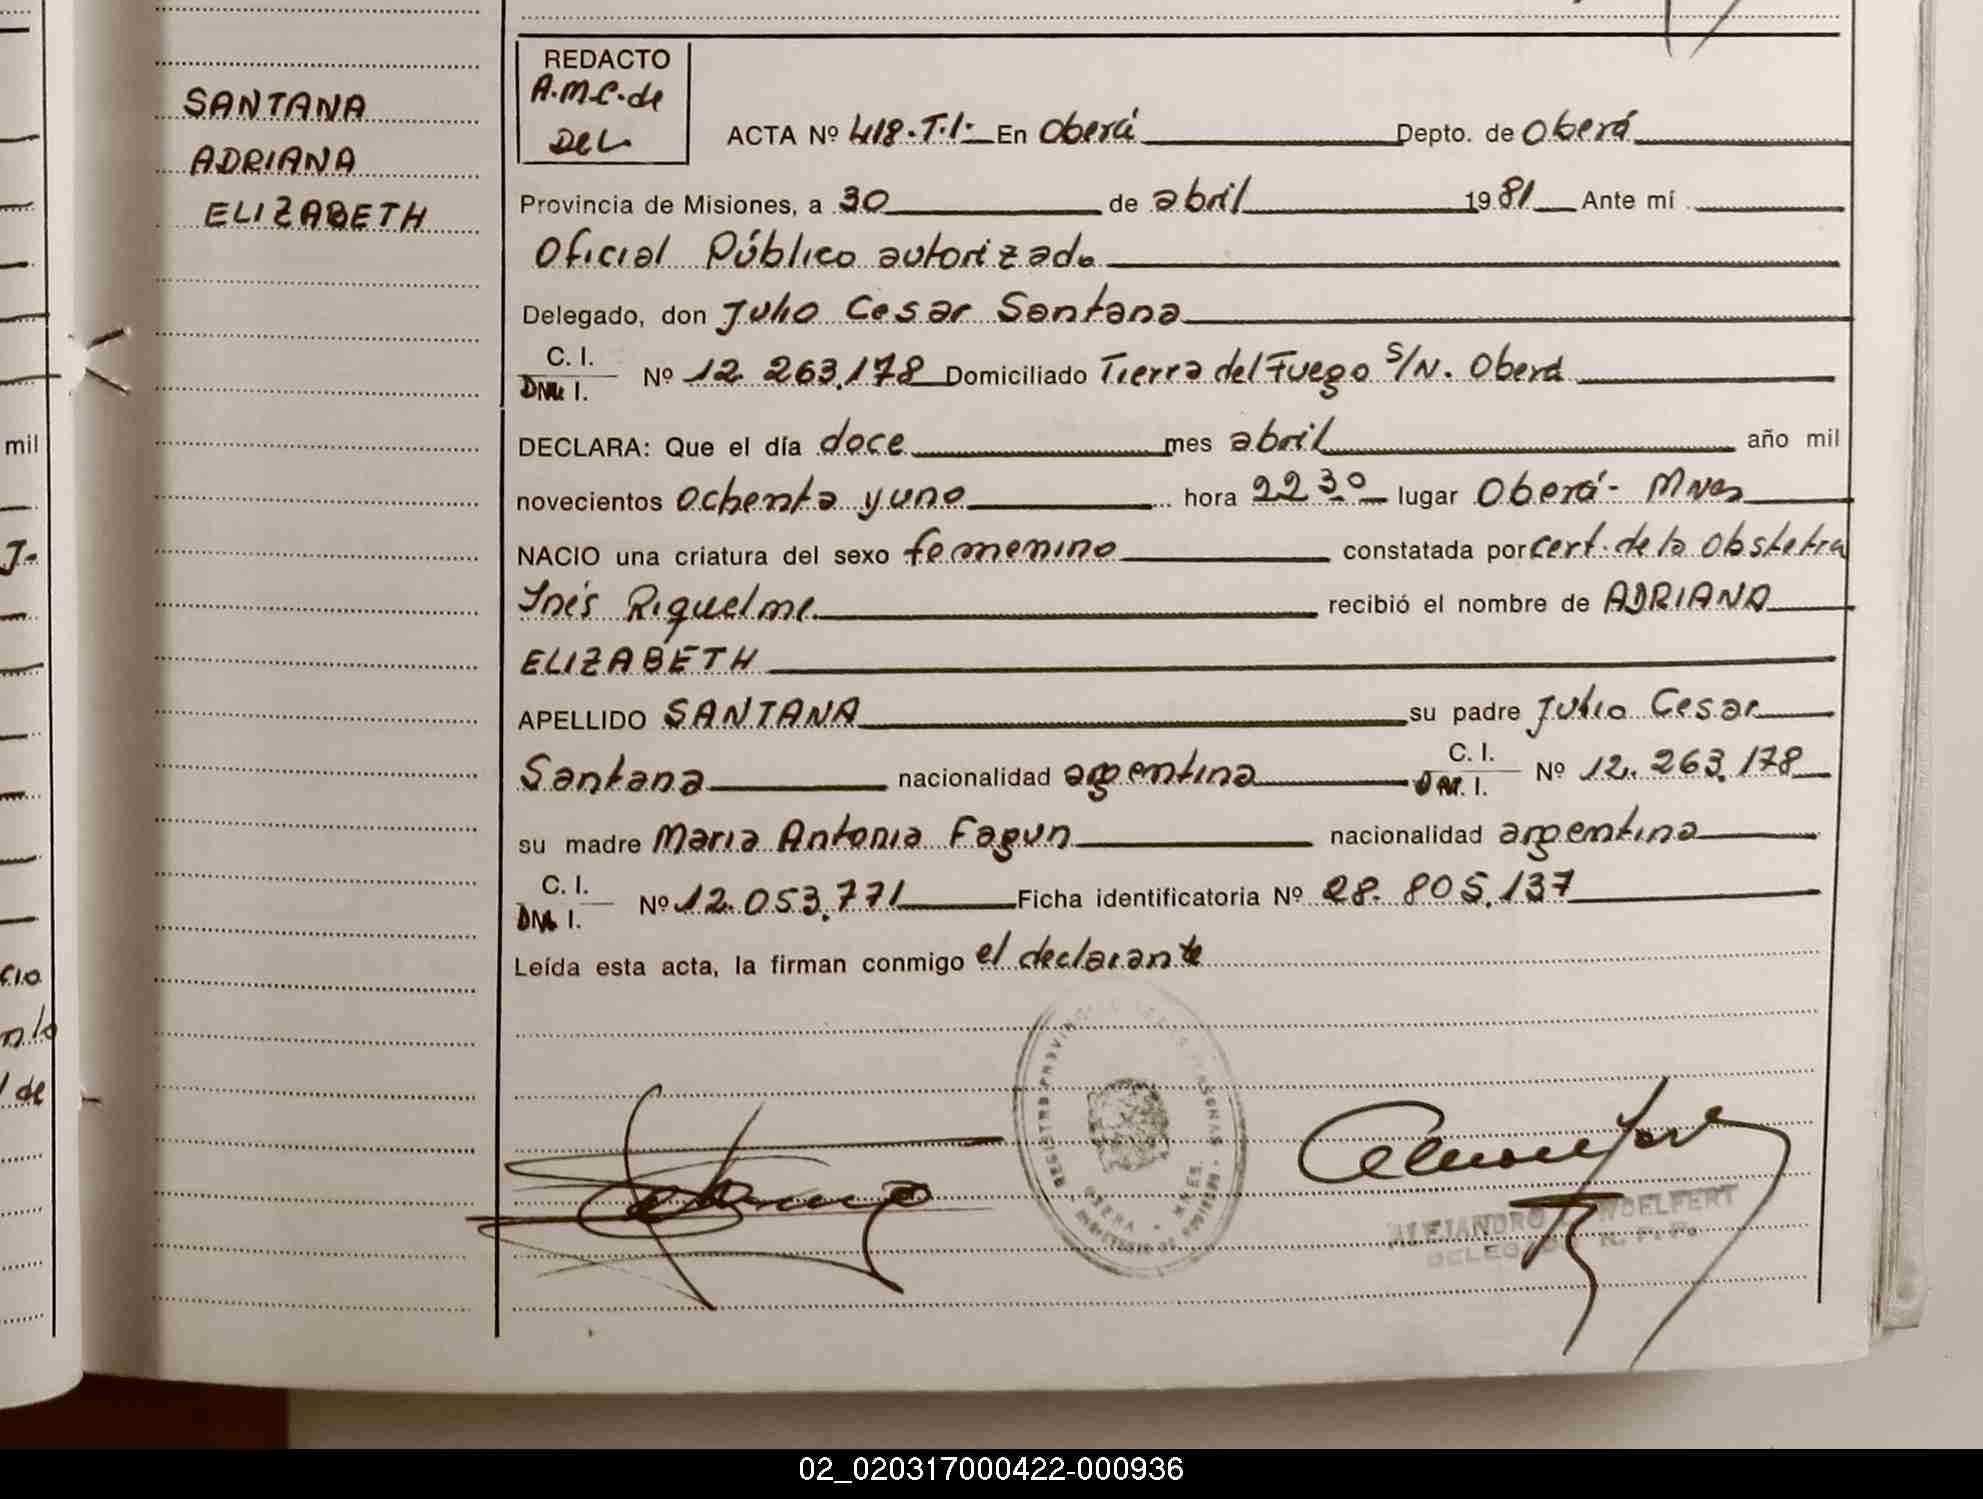 SANTANA
ADRIANA
ELIZABETH
mil
J-
cio
nlo
de
REDACTO
A.M.C. de
DEL
ACTA Nº 418. T.I. En Oberá Depto. de Oberá
Provincia de Misiones, a 30 de abril 1981 Ante mí
Oficial Público autorizado
Delegado, don Julio Cesar Santana
C. I.
D.N.I. Nº 12.263.178 Domiciliado Tierra del Fuego S/N. Oberá
DECLARA: Que el día doce mes abril año mil
novecientos ochenta y uno hora 22 30 lugar Oberá- Mnes
NACIO una criatura del sexo femenino constatada por cert. de la Obstetra
Inés Riquelme recibió el nombre de ADRIANA
ELIZABETH
APELLIDO SANTANA su padre Julio Cesar
Santana nacionalidad argentina C. I. D.N.I. Nº 12.263.178
su madre Maria Antonia Fagun nacionalidad argentina
C. I.
D.N.I. Nº 12.053.771 Ficha identificatoria Nº 28.805.137
Leída esta acta, la firman conmigo el declarante
REGISTRO PROVINCIAL DE LAS PERSONAS
ALEJANDRO
DELEGADO R. P. P.
02_020317000422-000936